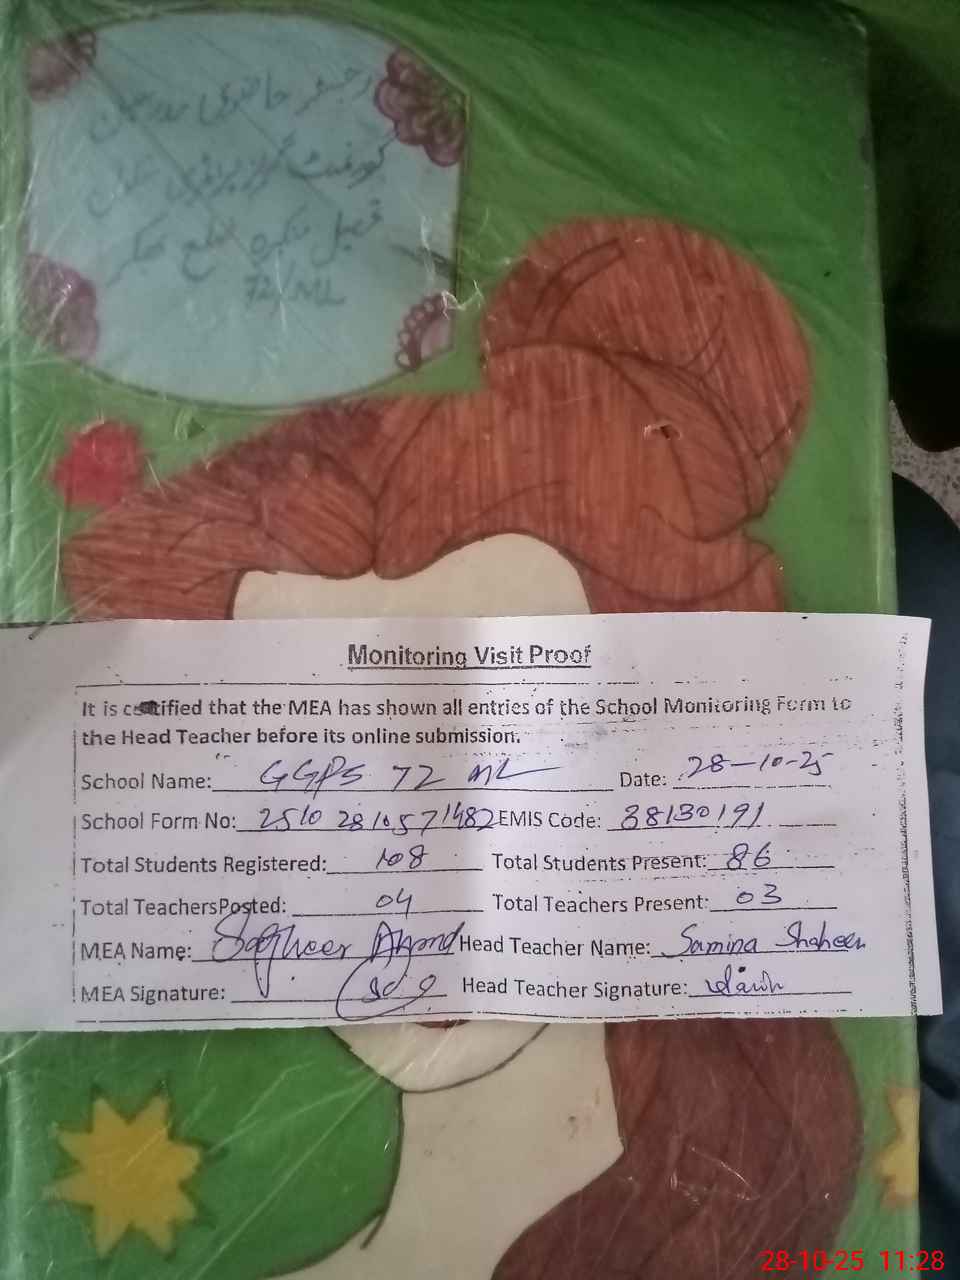 رجسٹر حاضری مدرسین
گورنمنٹ گرلز پرائمری
تحصیل بھکر ضلع بھکر
72/ML
Monitoring Visit Proof
It is certified that the MEA has shown all entries of the School Monitoring Form to
the Head Teacher before its online submission.
School Name: GGPS 72 ML Date: 28-10-25
School Form No: 2510 28 1057 1482 EMIS Code: 38130191
Total Students Registered: 108 Total Students Present: 86
Total Teachers Posted: 04 Total Teachers Present: 03
MEA Name: Sagheer Ahmad Head Teacher Name: Samina Shaheen
MEA Signature: Head Teacher Signature:
28-10-25 11:28